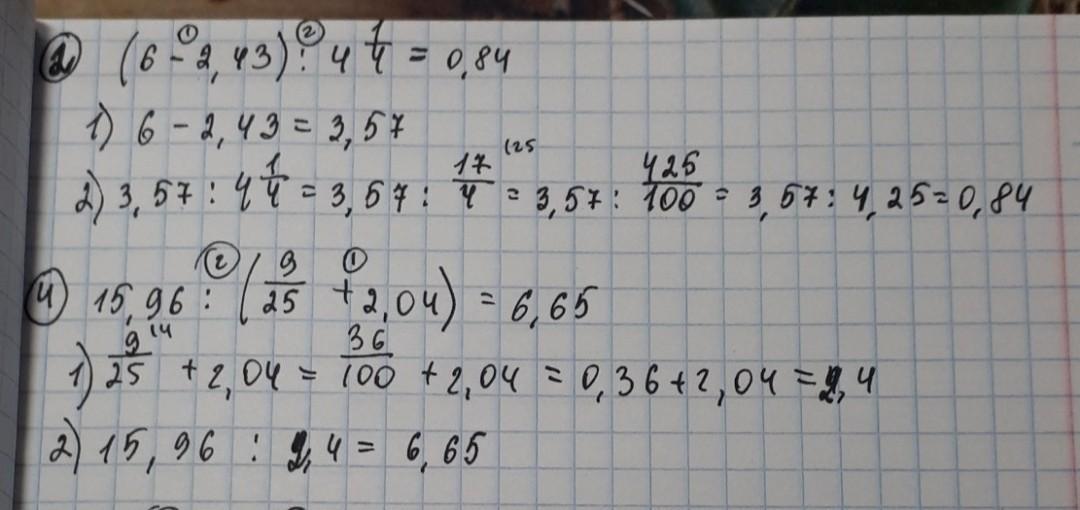 2) (6 - 2,43) : 4 1/4 = 0,84
1) 6 - 2,43 = 3,57
2) 3,57 : 4 1/4 = 3,57 : 17/4 (25 = 3,57 : 425/100 = 3,57 : 4,25 = 0,84
4) 15,96 : (9/25 + 2,04) = 6,65
1) 9/25 (4 + 2,04 = 36/100 + 2,04 = 0,36 + 2,04 = 2,4
2) 15,96 : 2,4 = 6,65